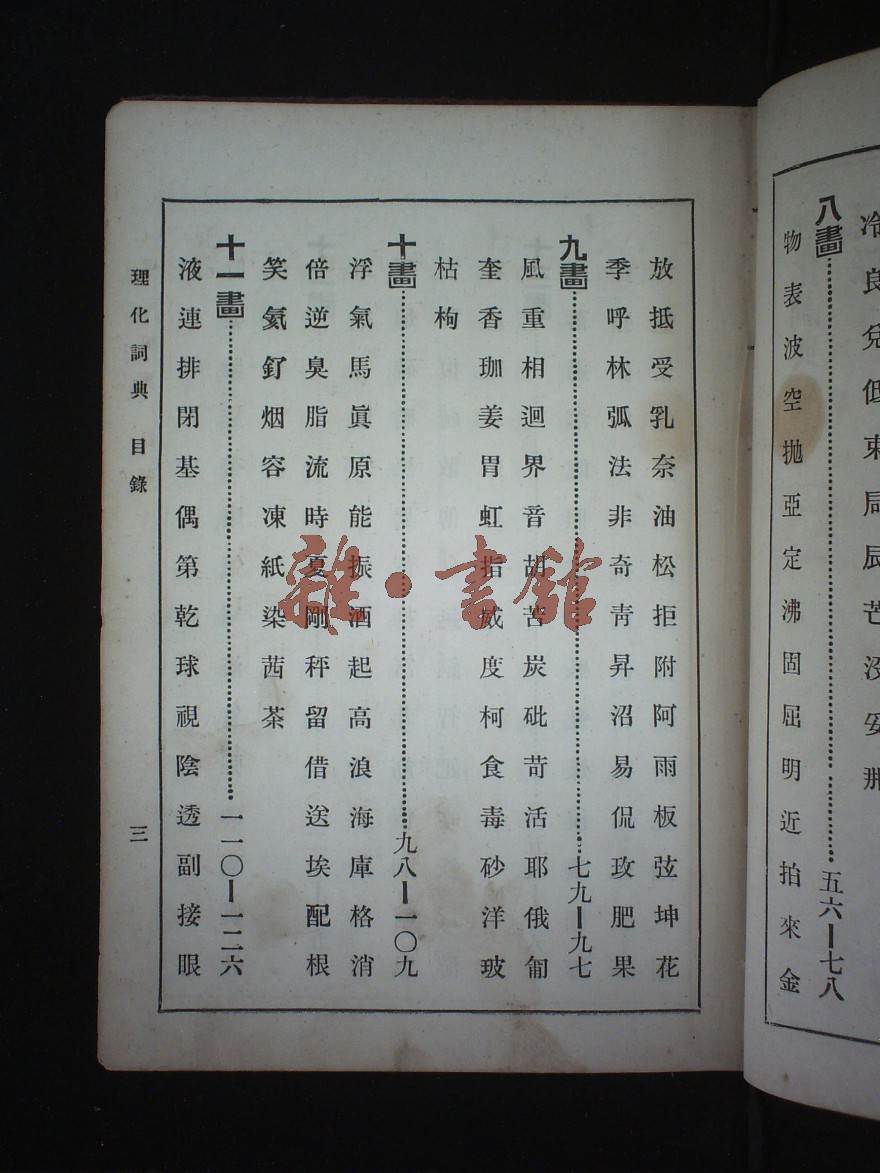 冷良兌低束局辰芒沒妥那
八畫……五六—七八
物表波空拋亞定沸固屈明近拍來金
放抵受乳奈油松拒附阿雨板弦坤花
季呼林弧法非奇靑昇沼易侃玫肥果
九畫……七九—九七
風重相迴界音胡苦炭砒苛活耶俄匍
奎香珈姜胃虹指威度柯食毒砂洋玻
枯枸
十畫……九八—一〇九
浮氣馬眞原能振酒起高浪海庫格消
倍逆臭脂流時夏剛秤留借送埃配根
笑氦釘烟容凍紙染茜茶
十一畫……一一〇—一二六
液連排閉基偶第乾球視陰透副接眼
理化詞典 目錄 三
雜·書館